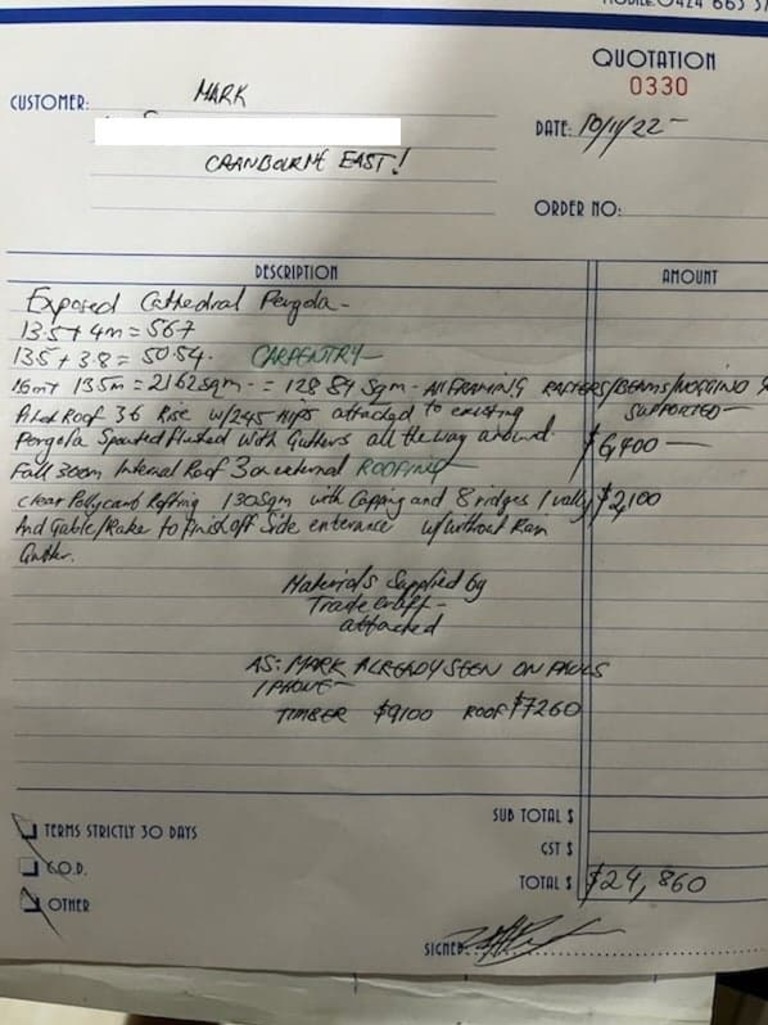 MOBILE: 0424 665
QUOTATION
0330
CUSTOMER: MARK
DATE: 10/11/22 -
CRANBOURNE EAST!
ORDER NO:
DESCRIPTION
AMOUNT
Exposed Cathedral Pergola -
13.5 + 4m = 567
13.5 + 3.8 = 50.54. CARPENTRY
16mt 135m = 2162sqm - = 128 84 Sqm - All FRAMING RAFTERS/BEAMS/NOGGING
Roof 36 Rise w/245 Hips attached to existing SUPPORTED
Pergola Spouted flushed with Gutters all the way around. $6,400
Fall 300m Internal Roof 3 on external ROOFING
clear Pollycarb Roffing 130Sqm with Capping and 8 ridges 1 vally $2,100
And Gable/Rake to finish off Side enterance w/without Rain
Gutter.
Materials Supplied by
Tradecraft -
attatched
AS: MARK ALREADY SEEN ON PAULS
IPHONE
TIMBER $9100 ROOF $7260
SUB TOTAL $
TERMS STRICTLY 30 DAYS
GST $
C.O.D.
TOTAL $ $24,860
OTHER
SIGNED: